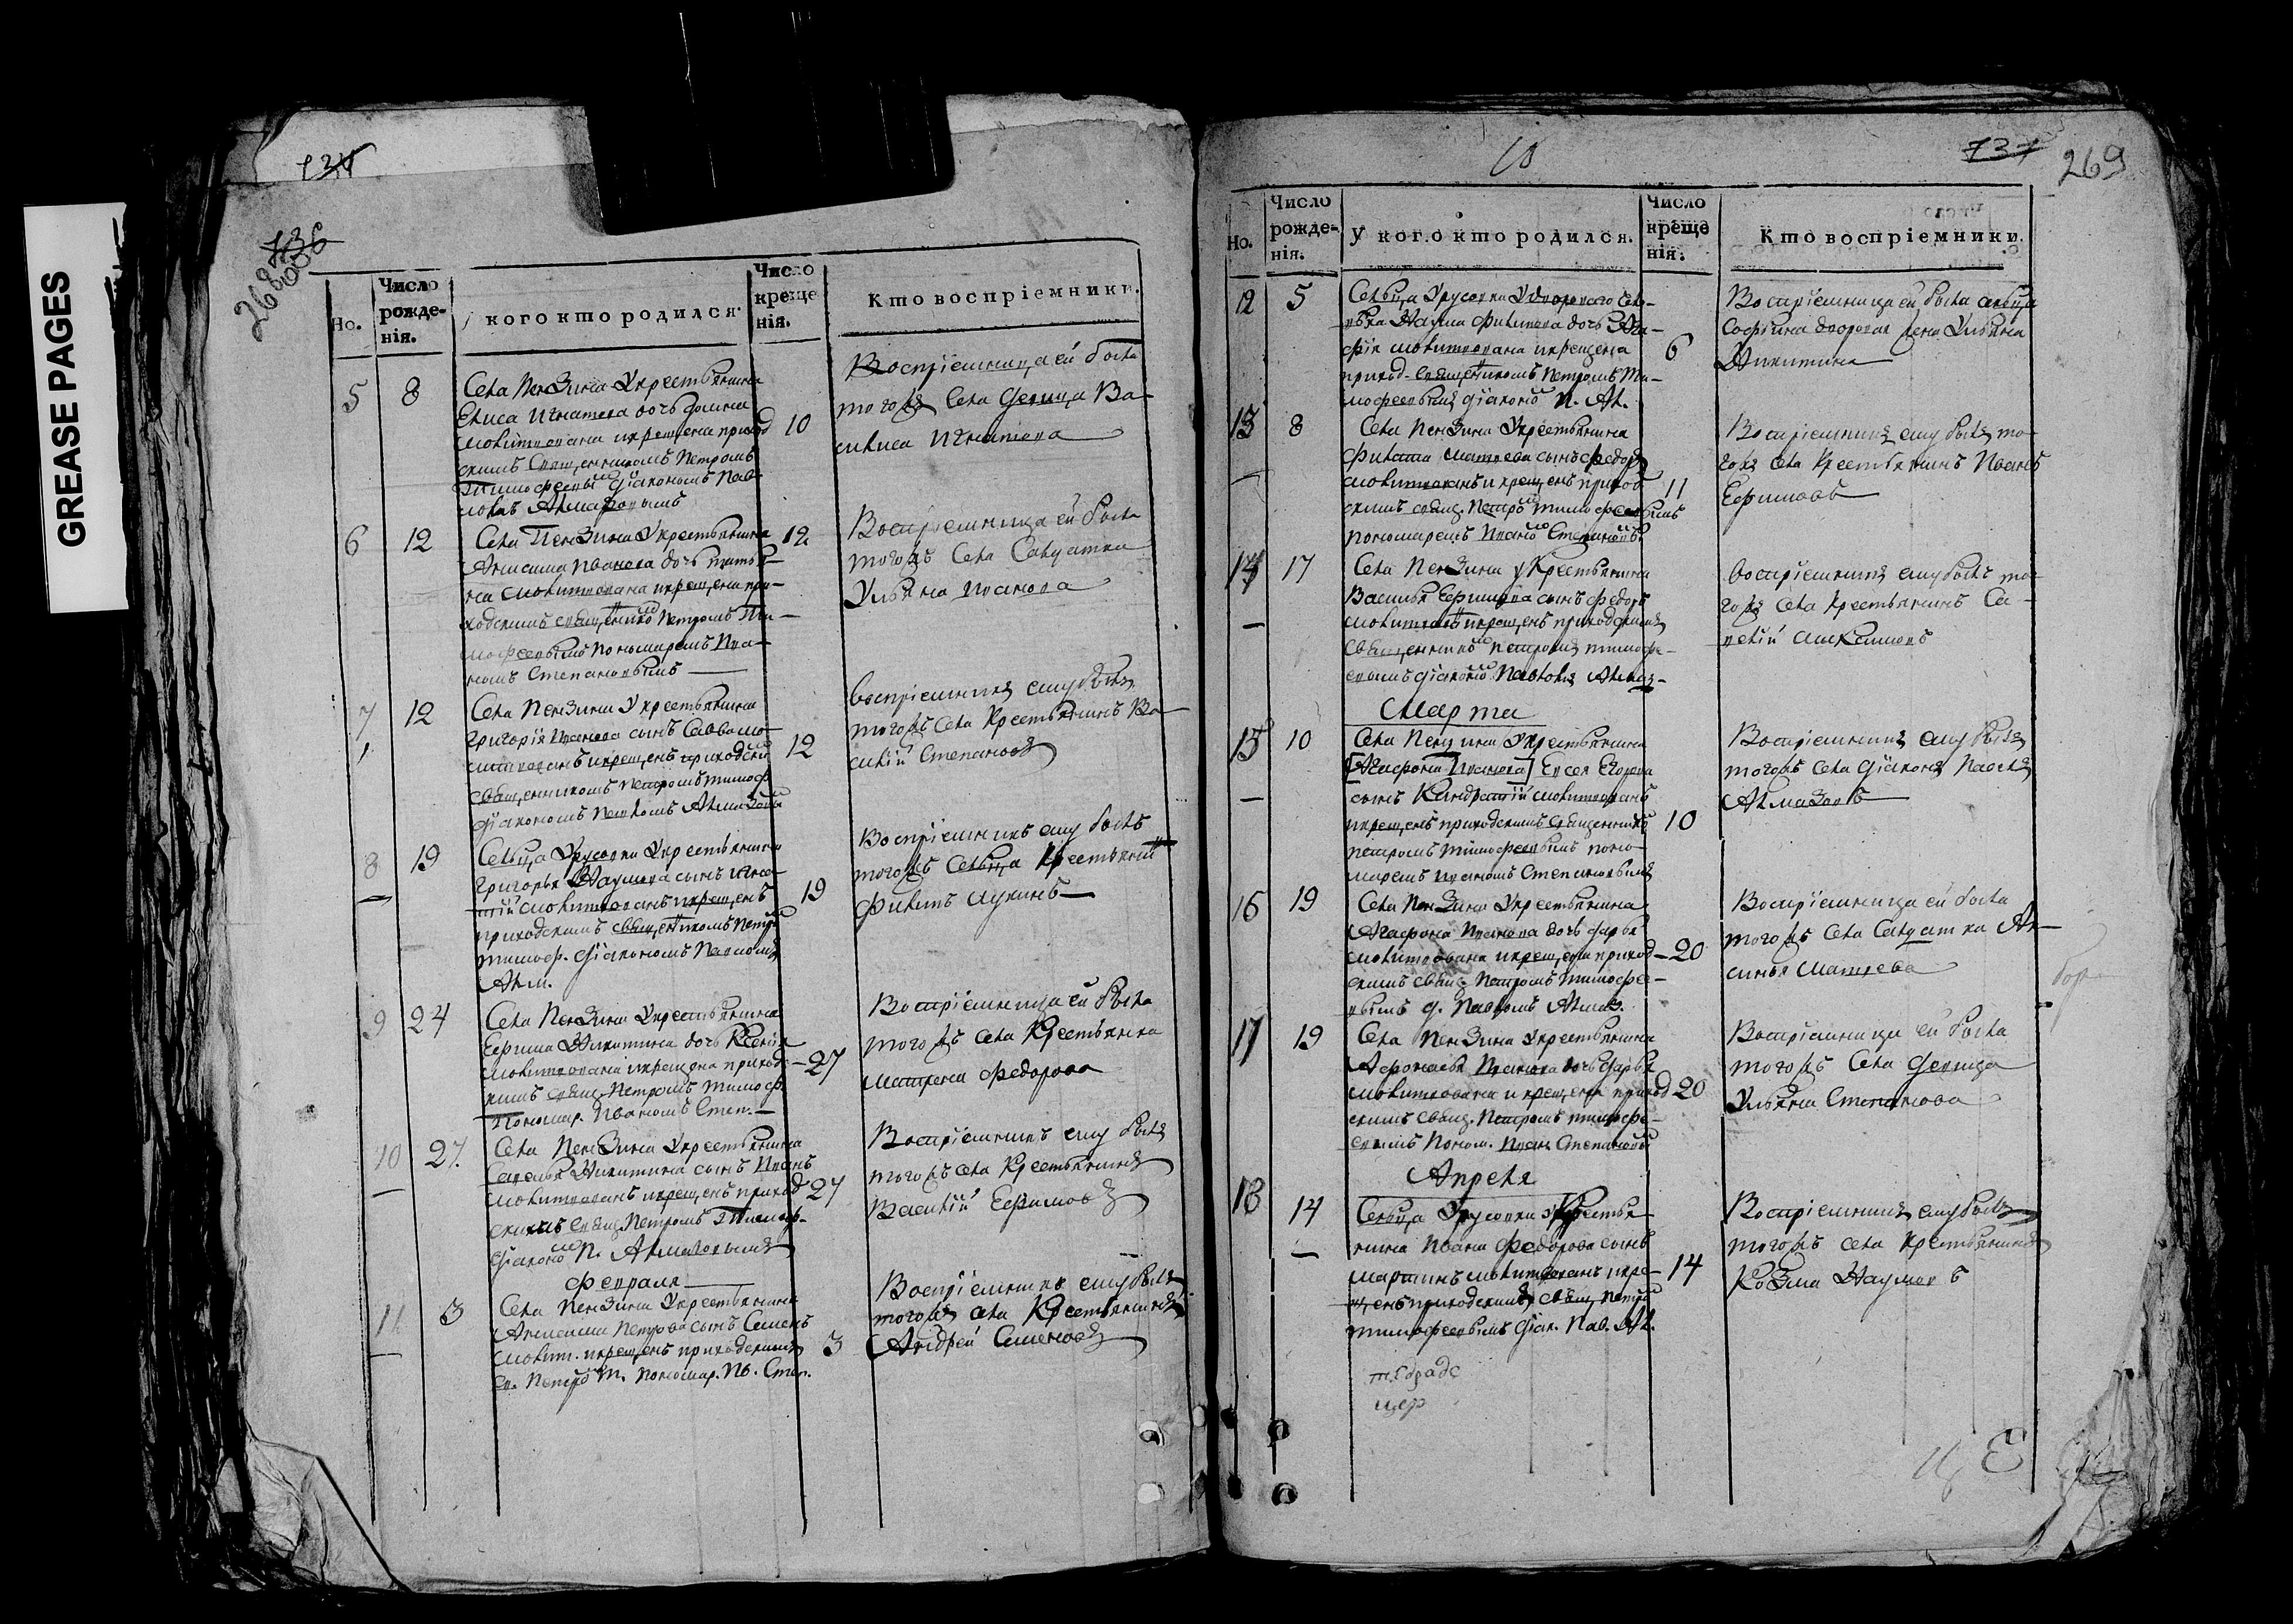 GREASE PAGES
736
268
Но.
Число рожденія.
кого кто родился.
Число крещенія.
Кто воспріемники.
5 8
Села Пензина Укрестьянина
Елиса Игнатева дочь
молитвована икрещена приход 10
скимъ священникомъ Петромъ
Тимофеевы діакономъ Пав
ломъ Алмазовымъ
Воспріемница ей была
тогожъ Села девица Ва-
силиса Игнатева
6 12
Села Пензина Укрестьянина 12
Анисима Иванова дочь
на молитвована икрещена при-
ходскимъ священико Петромъ Ти-
мофеевымъ пономаремъ Ива-
номъ Степановымъ
Воспріемница ей была
тогожъ Села Салдатка
Ульяна Иванова
7 12
Села Пензина Укрестьянина
Григорія Иванова сынъ Савва мо-
литвованъ икрещенъ приходски 12
священникомъ Петромъ Тимоф
діакономъ Павломъ Алмазовы
Воспріемникъ ему былъ
тогожъ Села Крестьянинъ Ва-
силій Степановъ
8 19
Сельца Урусовки Укрестьянина
Григорья Наумова сынъ Игна-
тій молитвованъ икрещенъ 19
приходскимъ священикомъ Петро
тимоф. діакономъ Павломъ
Алм.
Воспріемникъ ему былъ
тогожъ Сельца Крестьянин
Филипъ Лукинъ
9 24
Села Пензина Укрестьянина
Ефима Никитина дочь Ксенія
молитвована икрещена приход- 27
кимъ свящ. Петромъ Тимоф.
Пономар. Иваномъ Степ.
Воспріемница ей была
тогожъ села Крестьянка
Матрена Федорова
10 27.
Села Пензина Укрестьянина
Савелья Никитина сынъ Иванъ
молитвованъ икрещенъ приход 27
скимъ свящ. Петромъ Тимоф-
діаконо П. Алмазовымъ
Воспріемникъ ему былъ
тогожъ села Крестьянинъ
Василій Ефимовъ
Февраля
11 3
Села Пензина Укрестьянина
Анисима Петрова сынъ Семенъ
молит. икрещенъ приходскимъ 3
св. Петро Т. пономар. Ив. Степ.
Воспріемникъ ему былъ
тогожъ села Крестьянинъ
Андрей Семеновъ
10
737
269
Но.
Число рожденія.
У кого кто родился.
Число крещенія.
Кто воспріемники.
12 5
Сельца Урусовки Удворового чело-
века Наума Филипова дочь Ага-
фія молитвована икрещена 6
приход. священикомъ Петромъ Ти-
мофеевымъ діаконо П. Ал.
Воспріемница ей была сельца
Софьина дворовая жена Ульяна
Никитина
13 8
Села Пензина Укрестьянина
Филата Матвева сынъ Федоръ
молитвованъ икрещенъ приход 11
скимъ свящ. Петро Тимофеевымъ
пономаремъ Ивано Степановы
Воспріемникъ ему былъ то-
гожъ села Крестьянинъ Иванъ
Ефимовъ
14 17
Села Пензина Укрестьянина
Василья Ефимова сынъ Федоръ
молитвованъ икрещенъ приходскимъ
священнико Петромъ тимофе-
евымъ діаконо Павломъ Алмаз-
воспріемникъ ему былъ то-
гожъ села Крестьянинъ Са-
велій
Марта
15 10
Села Пензина Укрестьянина
[Агафона Иванова] Евсея Егорова
сынъ Кандратій молитвованъ
икрещенъ приходскимъ священнико 10
Петромъ Тимофеевымъ поно-
маремъ Иваномъ Степановымъ
Воспріемникъ ему былъ
тогожъ села діаконъ Павелъ
Алмазовъ
16 19
Села Пензина Укрестьянина
Агафона Иванова дочь Дарья
молитвована икрещена приход- 20
скимъ свящ. Петромъ Тимофее-
вымъ д. Павломъ Алмаз.
Воспріемница ей была
тогожъ села Салдатка Ак-
синья Матвева
17 19
Села Пензина Укрестьянина
Афонасья Иванова дочь Дарья
молитвована и крещена приход 20
скимъ свящ. Петромъ тимофе-
евымъ Поном. Иван Степановы
Воспріемница ей была
тогожъ Села девица
Ульяна Степанова
Апреля
18 14
Сельца Урусовки укрестья
нина Ивана Федорова сынъ
мартинъ молитвованъ икре- 14
щенъ приходскимъ свящ. Петро
тимофеевымъ діак. Пав. Ал.
Воспріемникъ ему былъ
тогожъ села Крестьянинъ
Козма Наумовъ